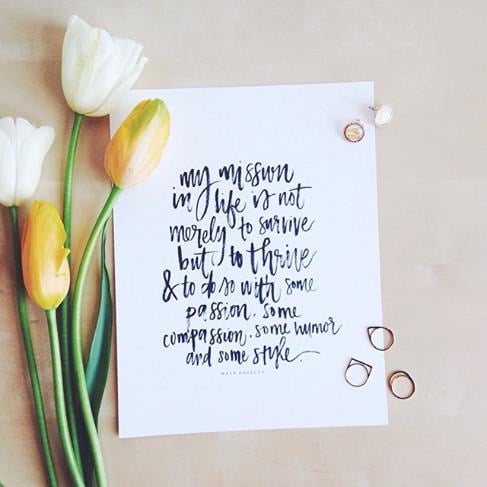 my mission
in life is not
merely to survive
but to thrive
& to do so with some
passion, some
compassion, some humor
and some style.
MAYA ANGELOU